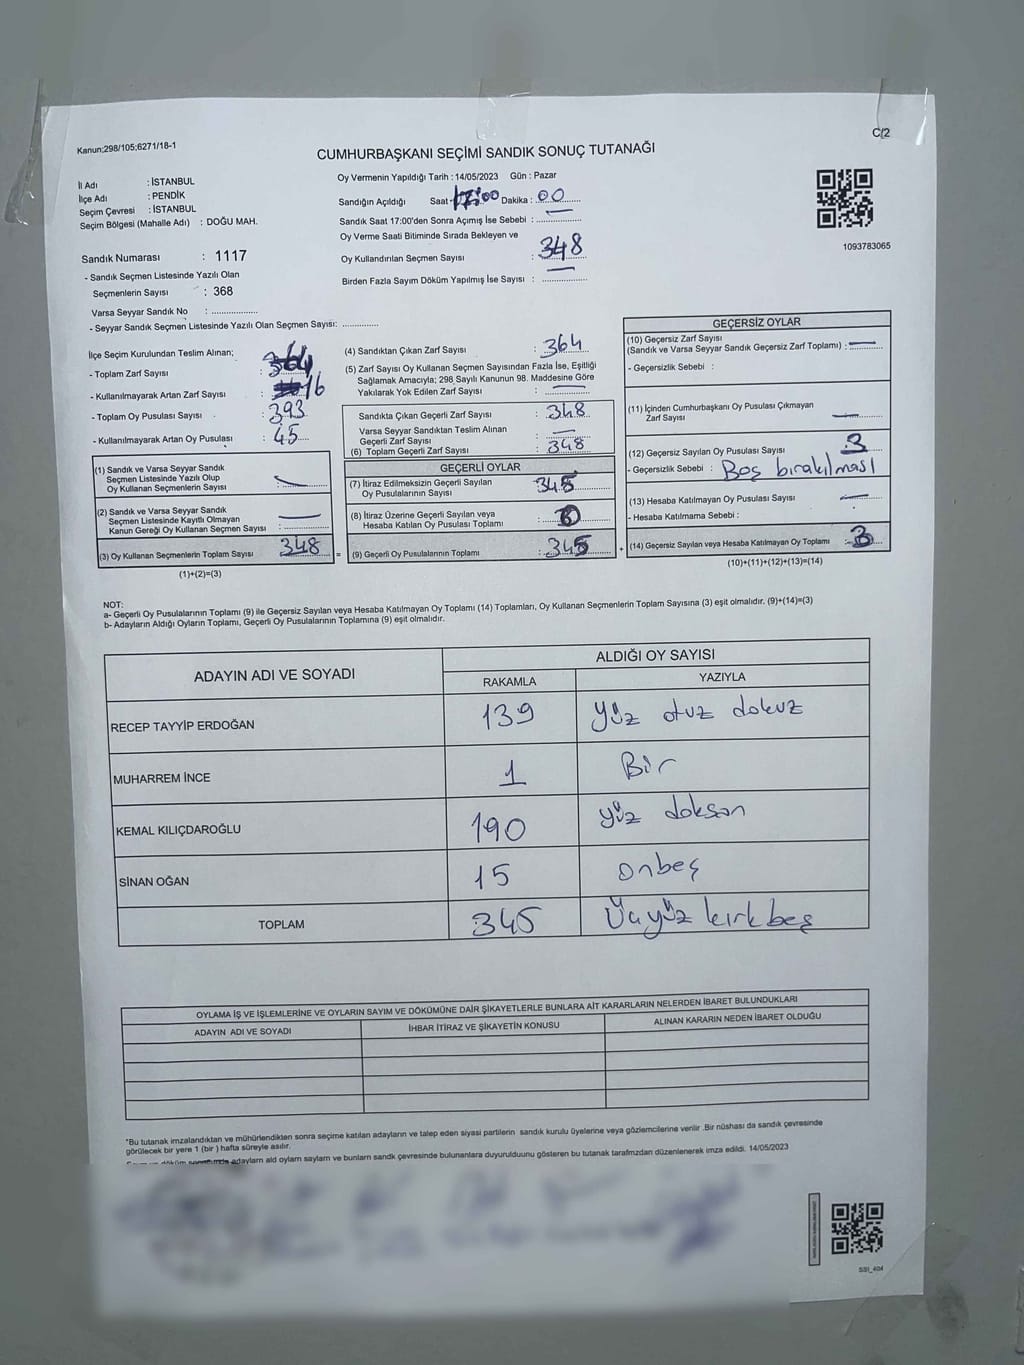 C/2
Kanun:298/105;6271/18-1
CUMHURBAŞKANI SEÇİMİ SANDIK SONUÇ TUTANAĞI
İl Adı : İSTANBUL
İlçe Adı : PENDİK
Seçim Çevresi : İSTANBUL
Seçim Bölgesi (Mahalle Adı) : DOĞU MAH.
Sandık Numarası : 1117
- Sandık Seçmen Listesinde Yazılı Olan
Seçmenlerin Sayısı : 368
Varsa Seyyar Sandık No : ..................
- Seyyar Sandık Seçmen Listesinde Yazılı Olan Seçmen Sayısı: .............
Oy Vermenin Yapıldığı Tarih : 14/05/2023 Gün : Pazar
Sandığın Açıldığı Saat 17:00 Dakika : 00
Sandık Saat 17:00'den Sonra Açımış İse Sebebi : —
Oy Verme Saati Bitiminde Sırada Bekleyen ve
Oy Kullandırılan Seçmen Sayısı : 348
Birden Fazla Sayım Döküm Yapılmış İse Sayısı : —
1093783065
İlçe Seçim Kurulundan Teslim Alınan;
- Toplam Zarf Sayısı : 364
- Kullanılmayarak Artan Zarf Sayısı : 16
- Toplam Oy Pusulası Sayısı : 393
- Kullanılmayarak Artan Oy Pusulası : 45
(1) Sandık ve Varsa Seyyar Sandık
Seçmen Listesinde Yazılı Olup
Oy Kullanan Seçmenlerin Sayısı : —
(2) Sandık ve Varsa Seyyar Sandık
Seçmen Listesinde Kayıtlı Olmayan
Kanun Gereği Oy Kullanan Seçmen Sayısı : —
(3) Oy Kullanan Seçmenlerin Toplam Sayısı 348 =
(1)+(2)=(3)
(4) Sandıktan Çıkan Zarf Sayısı : 364
(5) Zarf Sayısı Oy Kullanan Seçmen Sayısından Fazla İse, Eşitliği
Sağlamak Amacıyla; 298 Sayılı Kanunun 98. Maddesine Göre
Yakılarak Yok Edilen Zarf Sayısı : —
Sandıkta Çıkan Geçerli Zarf Sayısı : 348
Varsa Seyyar Sandıktan Teslim Alınan
Geçerli Zarf Sayısı : —
(6) Toplam Geçerli Zarf Sayısı : 348
GEÇERLİ OYLAR
(7) İtiraz Edilmeksizin Geçerli Sayılan
Oy Pusulalarının Sayısı 345
(8) İtiraz Üzerine Geçerli Sayılan veya
Hesaba Katılan Oy Pusulası Toplamı : 0
(9) Geçerli Oy Pusulalarının Toplamı : 345 +
GEÇERSİZ OYLAR
(10) Geçersiz Zarf Sayısı
(Sandık ve Varsa Seyyar Sandık Geçersiz Zarf Toplamı) : —
- Geçersizlik Sebebi :
(11) İçinden Cumhurbaşkanı Oy Pusulası Çıkmayan
Zarf Sayısı : —
(12) Geçersiz Sayılan Oy Pusulası Sayısı : 3
- Geçersizlik Sebebi : Boş bırakılması
(13) Hesaba Katılmayan Oy Pusulası Sayısı : —
- Hesaba Katılmama Sebebi :
(14) Geçersiz Sayılan veya Hesaba Katılmayan Oy Toplamı : 3
(10)+(11)+(12)+(13)=(14)
NOT:
a- Geçerli Oy Pusulalarının Toplamı (9) ile Geçersiz Sayılan veya Hesaba Katılmayan Oy Toplamı (14) Toplamları, Oy Kullanan Seçmenlerin Toplam Sayısına (3) eşit olmalıdır. (9)+(14)=(3)
b- Adayların Aldığı Oyların Toplamı, Geçerli Oy Pusulalarının Toplamına (9) eşit olmalıdır.
ADAYIN ADI VE SOYADI
ALDIĞI OY SAYISI
RAKAMLA YAZIYLA
RECEP TAYYİP ERDOĞAN 139 Yüz otuz dokuz
MUHARREM İNCE 1 Bir
KEMAL KILIÇDAROĞLU 190 yüz doksan
SİNAN OĞAN 15 onbeş
TOPLAM 345 Üçyüz kırk beş
OYLAMA İŞ VE İŞLEMLERİNE VE OYLARIN SAYIM VE DÖKÜMÜNE DAİR ŞİKAYETLERLE BUNLARA AİT KARARLARIN NELERDEN İBARET BULUNDUKLARI
ADAYIN ADI VE SOYADI İHBAR İTİRAZ VE ŞİKAYETİN KONUSU ALINAN KARARIN NEDEN İBARET OLDUĞU
*Bu tutanak imzalandıktan ve mühürlendikten sonra seçime katılan adayların ve talep eden siyasi partilerin sandık kurulu üyelerine veya gözlemcilerine verilir .Bir nüshası da sandık çevresinde
görülecek bir yere 1 (bir ) hafta süreyle asılır.
adayların ald oyların sayların ve bunların sandk çevresinde bulunanlara duyurulduunu gösteren bu tutanak tarafmzdan düzenlenerek imza edildi. 14/05/2023
SSI_404